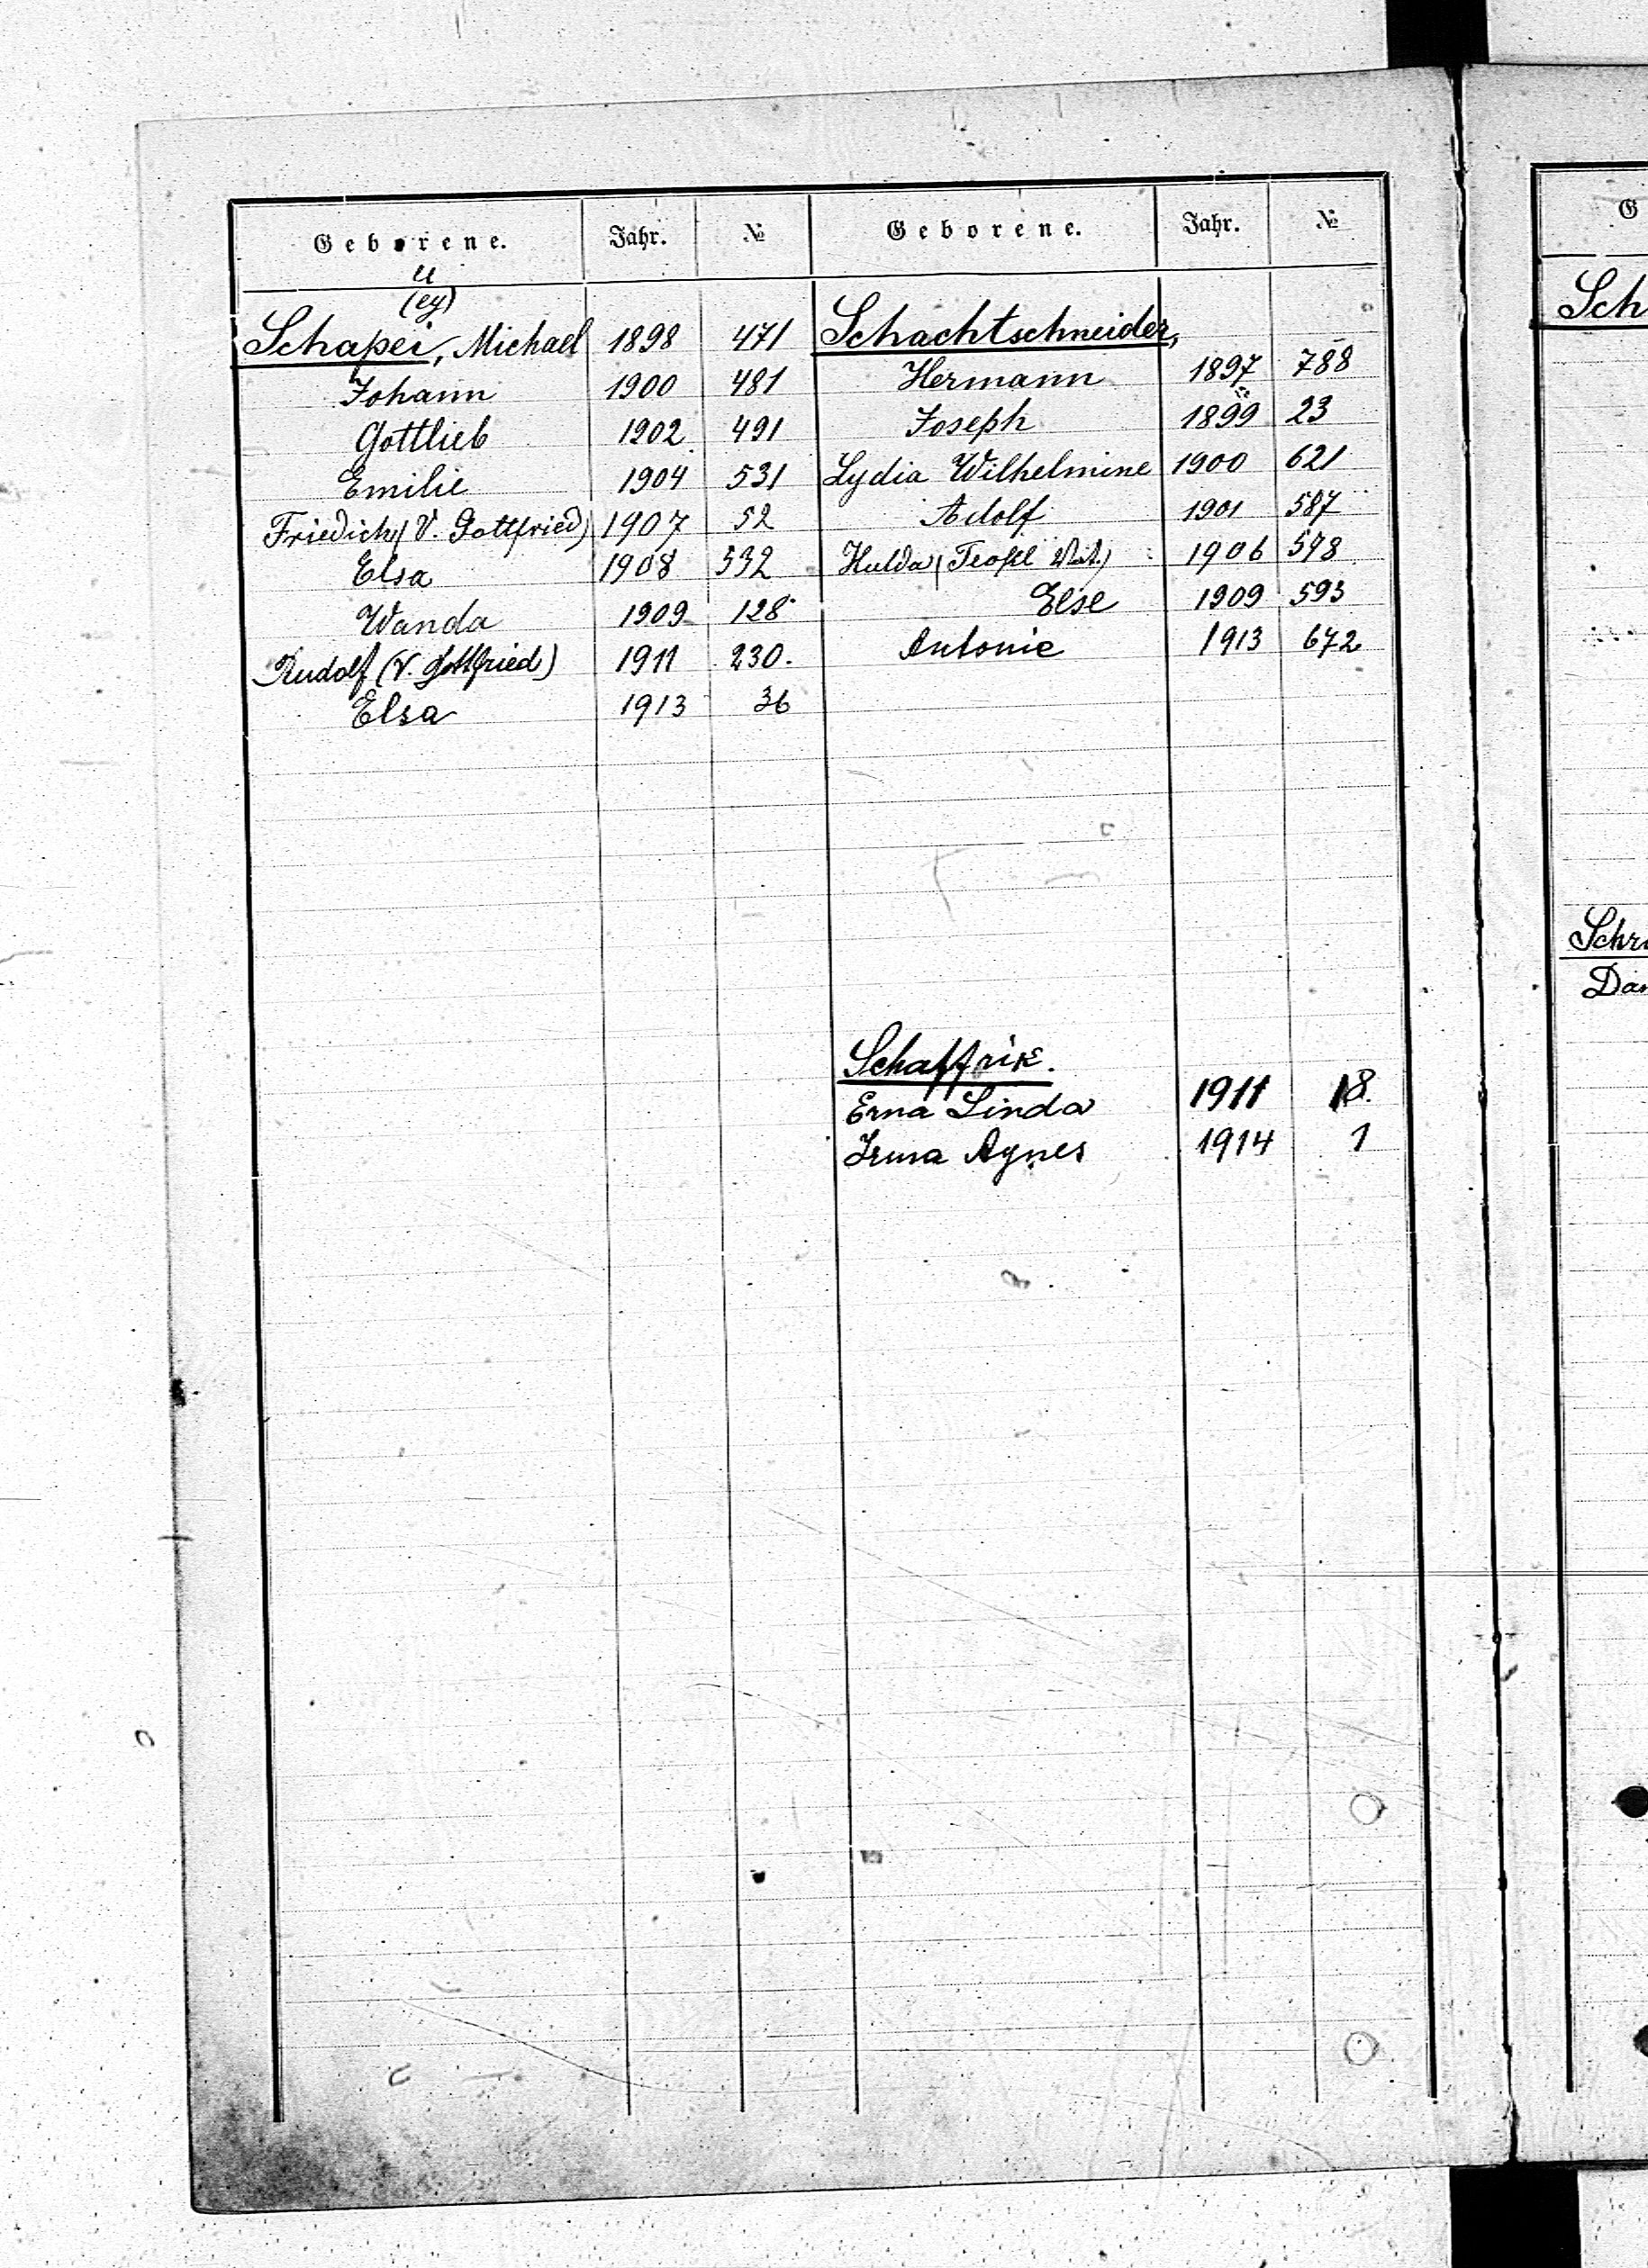 Geborene. Jahr. № Geborene. Jahr. №
u
(ey)
Schapei, Michael 1898 471
Johann 1900 481
Gottlieb 1902 491
Emilie 1904 531
Friedich (V. Gottfried) 1907 52
Elsa 1908 532
Wanda 1909 128
Rudolf (V. Gottfried) 1911 230.
Elsa 1913 36
Schachtschneider,
Hermann 1897 788
Joseph 1899 23
Lydia Wilhelmine 1900 621
Adolf 1901 587
Hulda (Teofil 1906 578
Else 1909 593
Antonie 1913 672
Schaffrik.
Erna Linda 1911 18.
Irma Agnes 1914 1
G
Sch
Schr
Dan